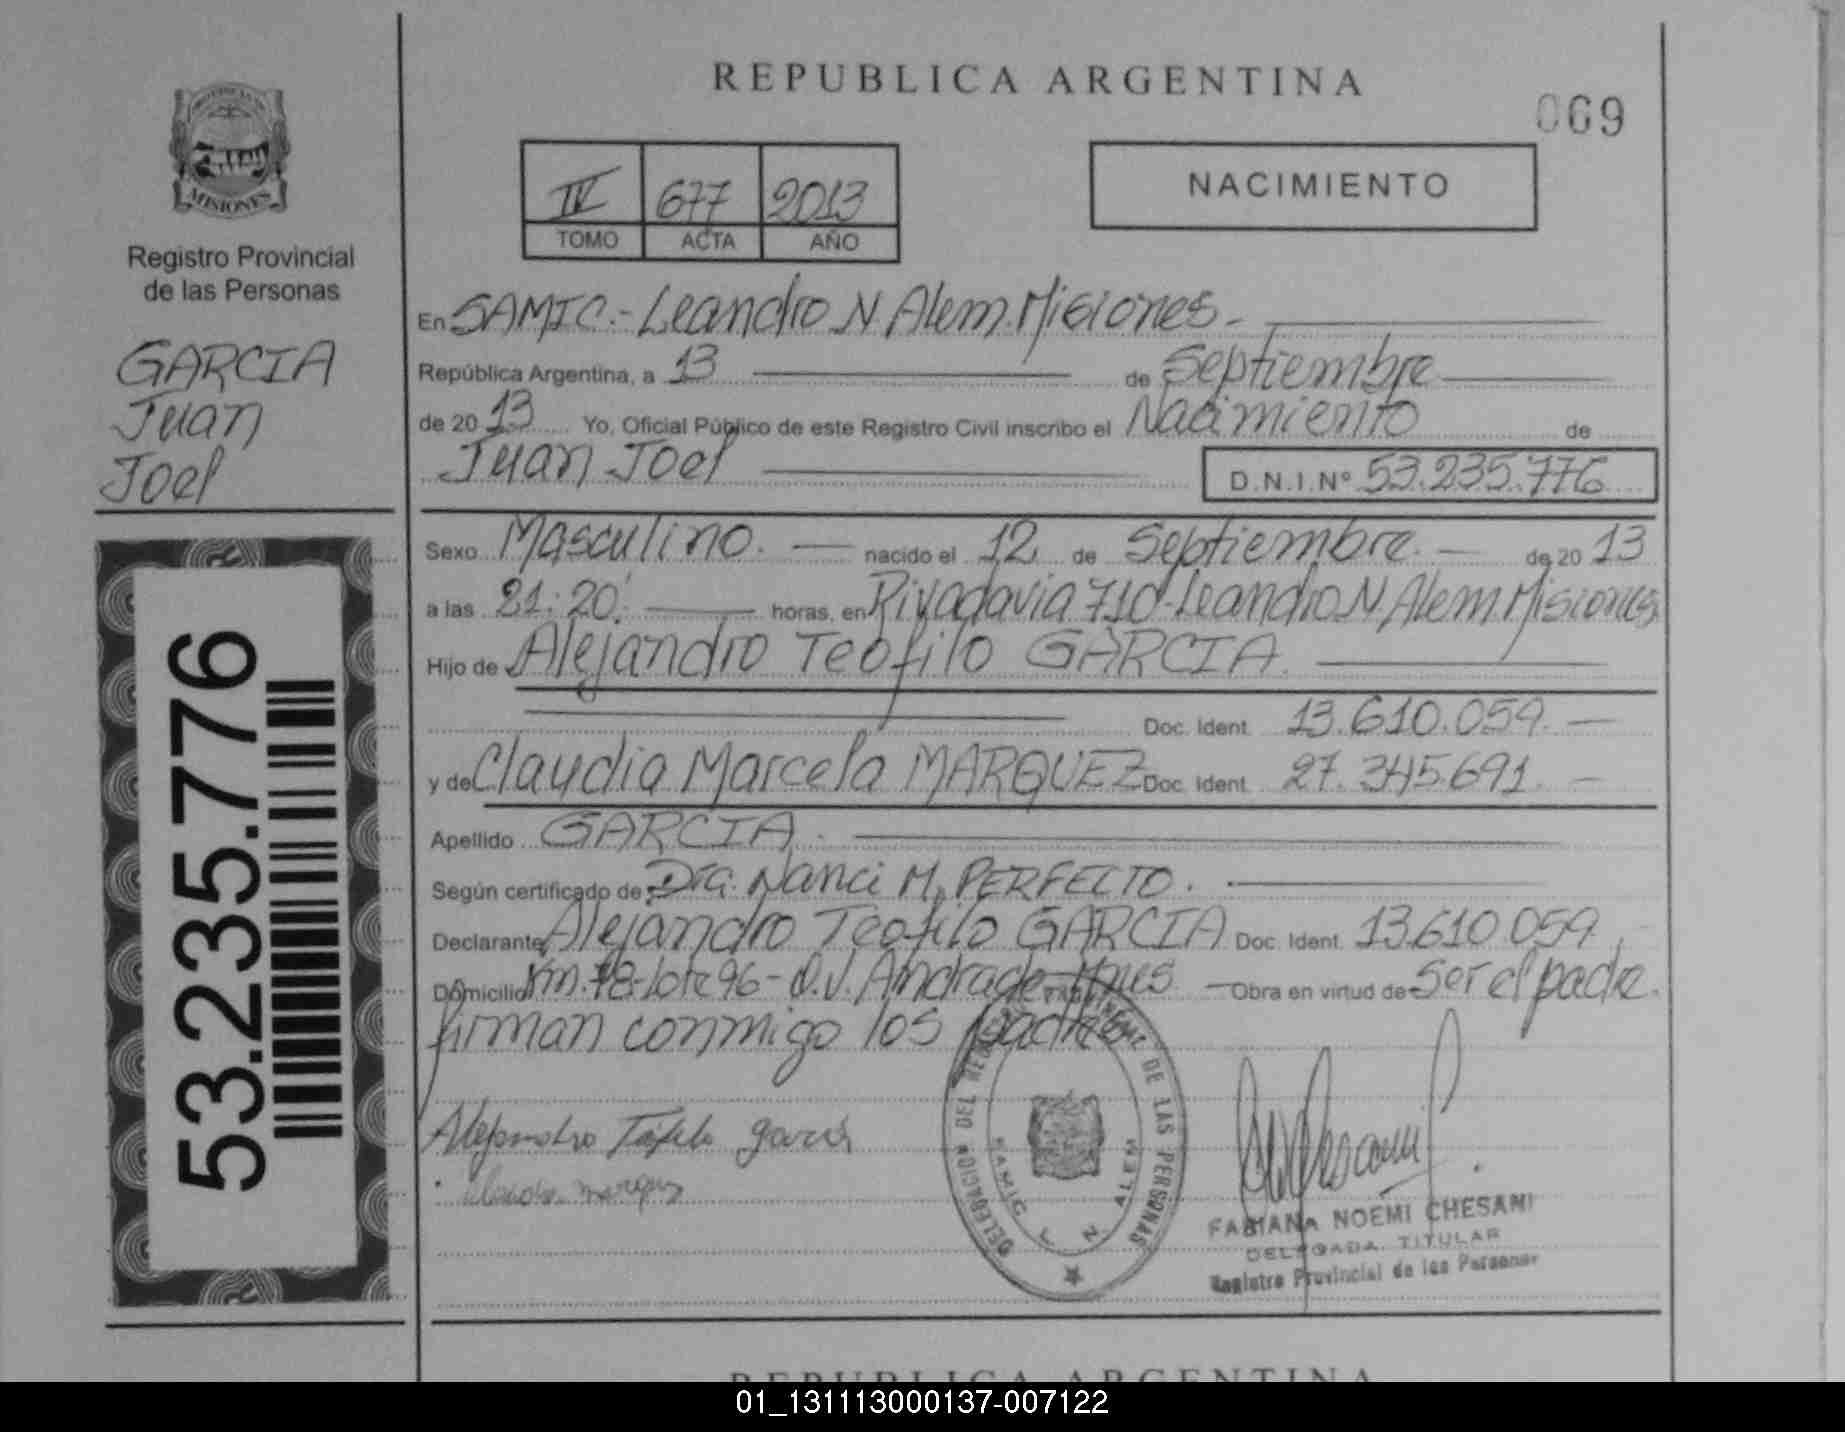 REPUBLICA ARGENTINA
069
PROVINCIA DE
MISIONES
Registro Provincial
de las Personas
GARCIA
Juan
Joel
53.235.776
IV 677 2013
TOMO ACTA AÑO
NACIMIENTO
En SAMIC.- Leandro N Alem. Misiones -
República Argentina, a 13 de Septiembre
de 20 13 Yo, Oficial Público de este Registro Civil inscribo el Nacimiento de
Juan Joel
D.N.I.Nº 53.235.776
Sexo Masculino. nacido el 12 de Septiembre. de 20 13
a las 21:20' horas, en Rivadavia 710-Leandro N. Alem. Misiones.
Hijo de Alejandro Teofilo GARCIA.
Doc. Ident. 13.610.059.
y de Claudia Marcela MARQUEZ Doc. Ident. 27.345.691.
Apellido GARCIA.
Según certificado de: Dra. Nanci M. PERFECTO.
Declarante Alejandro Teofilo GARCIA Doc. Ident. 13.610.059.
Domicilio Km. 78-lote 96- O.V. Andrade Mnes Obra en virtud de Ser el padre.
firman conmigo los padres
Alejandro Teofilo Garcia
Claudia marquez
DELEGACION DEL REGISTRO DE LAS PERSONAS
SAMIC L N ALEM
FABIANA NOEMI CHESANI
DELEGADA TITULAR
Registro Provincial de las Personas
REPUBLICA ARGENTINA
01_131113000137-007122